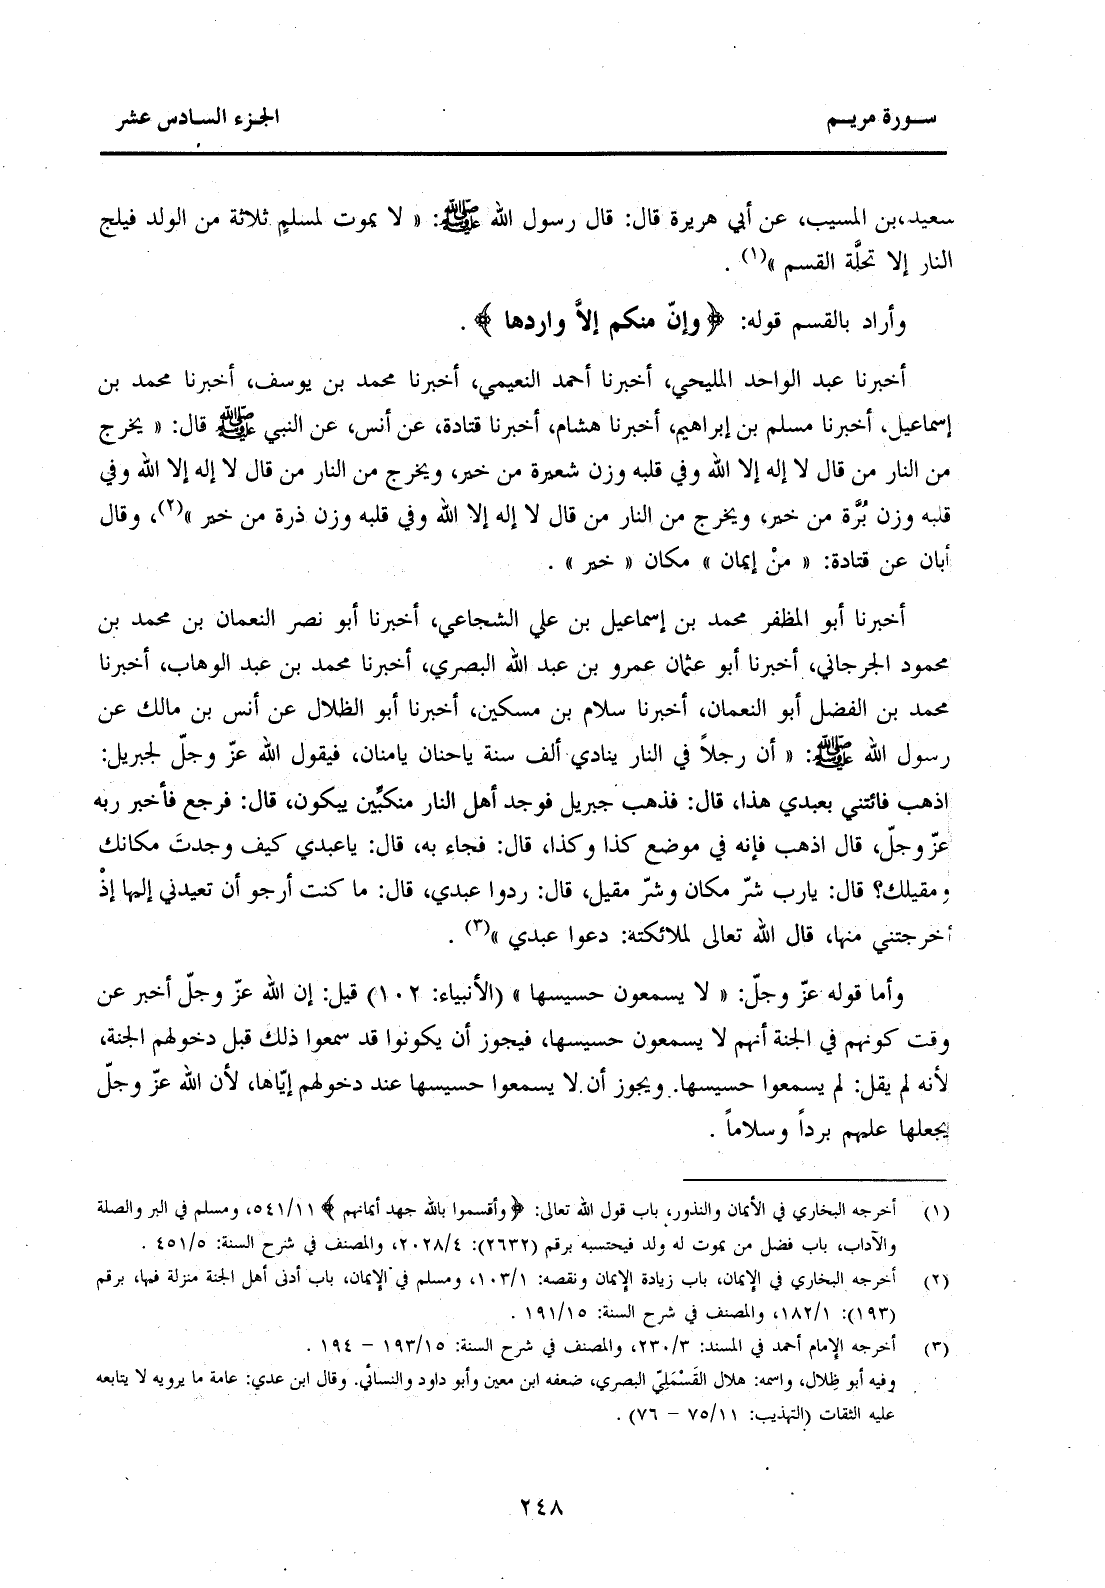 سورة مريم
الجزء السادس عشر
سعيد بن المسيب، عن أبي هريرة قال: قال رسول الله ﷺ: « لا يموت لمسلمٍ ثلاثة من الولد فيلج
النار إلا تحلَّة القسم »(١) .
وأراد بالقسم قوله: ﴿ وإنّ منكم إلاَّ واردها ﴾ .
أخبرنا عبد الواحد المليحي، أخبرنا أحمد النعيمي، أخبرنا محمد بن يوسف، أخبرنا محمد بن
إسماعيل، أخبرنا مسلم بن إبراهيم، أخبرنا هشام، أخبرنا قتادة، عن أنس، عن النبي ﷺ قال: « يخرج
من النار من قال لا إله إلا الله وفي قلبه وزن شعيرة من خير، ويخرج من النار من قال لا إله إلا الله وفي
قلبه وزن بُرَّة من خير، ويخرج من النار من قال لا إله إلا الله وفي قلبه وزن ذرة من خير »(٢)، وقال
أبان عن قتادة: « منْ إيمان » مكان « خير » .
أخبرنا أبو المظفر محمد بن إسماعيل بن علي الشجاعي، أخبرنا أبو نصر النعمان بن محمد بن
محمود الجرجاني، أخبرنا أبو عثمان عمرو بن عبد الله البصري، أخبرنا محمد بن عبد الوهاب، أخبرنا
محمد بن الفضل أبو النعمان، أخبرنا سلام بن مسكين، أخبرنا أبو الظلال عن أنس بن مالك عن
رسول الله ﷺ: « أن رجلاً في النار ينادي ألف سنة ياحنان يامنان، فيقول الله عزّ وجلّ لجبريل:
اذهب فائتني بعبدي هذا، قال: فذهب جبريل فوجد أهل النار منكبِّين يبكون، قال: فرجع فأخبر ربه
عزّ وجلّ، قال اذهب فإنه في موضع كذا وكذا، قال: فجاء به، قال: ياعبدي كيف وجدتَ مكانك
ومقيلك؟ قال: يارب شرّ مكان وشرّ مقيل، قال: ردوا عبدي، قال: ما كنت أرجو أن تعيدني إليها إذْ
أخرجتني منها، قال الله تعالى لملائكته: دعوا عبدي »(٣) .
وأما قوله عزّ وجلّ: « لا يسمعون حسيسها » (الأنبياء: ١٠٢) قيل: إن الله عزّ وجلّ أخبر عن
وقت كونهم في الجنة أنهم لا يسمعون حسيسها، فيجوز أن يكونوا قد سمعوا ذلك قبل دخولهم الجنة،
لأنه لم يقل: لم يسمعوا حسيسها. ويجوز أن لا يسمعوا حسيسها عند دخولهم إيّاها، لأن الله عزّ وجلّ
يجعلها عليهم برداً وسلاماً .
(١) أخرجه البخاري في الأيمان والنذور، باب قول الله تعالى: ﴿ وأقسموا بالله جهد أيمانهم ﴾ ٥٤١/١١، ومسلم في البر والصلة
والآداب، باب فضل من يموت له ولد فيحتسبه برقم (٢٦٣٢): ٢٠٢٨/٤، والمصنف في شرح السنة: ٤٥١/٥ .
(٢) أخرجه البخاري في الإيمان، باب زيادة الإيمان ونقصه: ١٠٣/١، ومسلم في الإيمان، باب أدنى أهل الجنة منزلة فيها، برقم
(١٩٣): ١٨٢/١، والمصنف في شرح السنة: ١٩١/١٥ .
(٣) أخرجه الإمام أحمد في المسند: ٢٣٠/٣، والمصنف في شرح السنة: ١٩٣/١٥ – ١٩٤ .
وفيه أبو ظِلال، واسمه: هلال القَسْمَلِيّ البصري، ضعفه ابن معين وأبو داود والنسائي. وقال ابن عدي: عامة ما يرويه لا يتابعه
عليه الثقات (التهذيب: ٧٥/١١ – ٧٦) .
٢٤٨